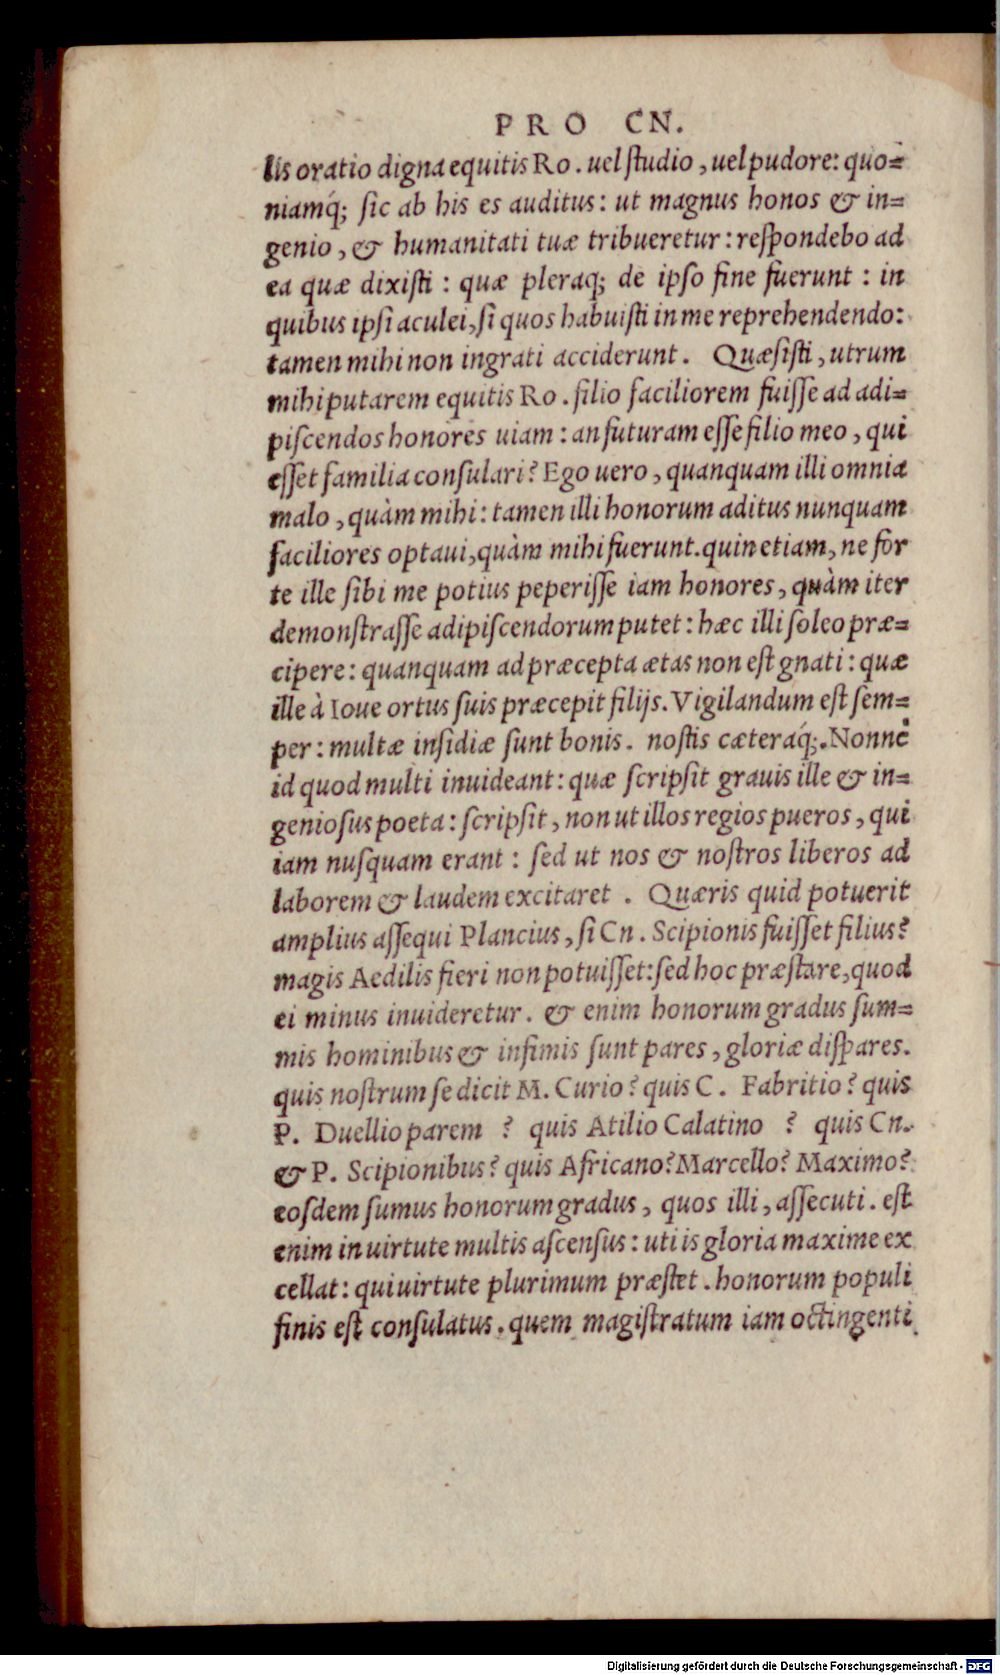 PRO CN.
lis oratio digna equitis Ro. uel studio, uel pudore: quo=
niamq́; sic ab his es auditus: ut magnus honos & in=
genio, & humanitati tuæ tribueretur: respondebo ad
ea quæ dixisti: quæ pleraq; de ipso fine fuerunt: in
quibus ipsi aculei, si quos habuisti in me reprehendendo:
tamen mihi non ingrati acciderunt. Quæsisti, utrum
mihi putarem equitis Ro. filio faciliorem fuisse ad adi=
piscendos honores uiam: an futuram esse filio meo, qui
esset familia consulari? Ego uero, quanquam illi omnia
malo, quàm mihi: tamen illi honorum aditus nunquam
faciliores optaui, quàm mihi fuerunt. quin etiam, ne for
te ille sibi me potius peperisse iam honores, quàm iter
demonstrasse adipiscendorum putet: hæc illi soleo præ=
cipere: quanquam ad præcepta ætas non est gnati: quæ
ille à Ioue ortus suis præcepit filijs. Vigilandum est sem=
per: multæ insidiæ sunt bonis. nostis cæteraq́;. Nonne
id quod multi inuideant: quæ scripsit grauis ille & in=
geniosus poeta: scripsit, non ut illos regios pueros, qui
iam nusquam erant: sed ut nos & nostros liberos ad
laborem & laudem excitaret. Quæris quid potuerit
amplius assequi Plancius, si Cn. Scipionis fuisset filius?
magis Aedilis fieri non potuisset: sed hoc præstare, quod
ei minus inuideretur. & enim honorum gradus sum=
mis hominibus & infimis sunt pares, gloriæ dispares.
quis nostrum se dicit M. Curio? quis C. Fabritio? quis
P. Duellio parem? quis Atilio Calatino? quis Cn.
& P. Scipionibus? quis Africano? Marcello? Maximo?
eosdem sumus honorum gradus, quos illi, assecuti. est
enim in uirtute multis ascensus: uti is gloria maxime ex
cellat: qui uirtute plurimum præstet. honorum populi
finis est consulatus. quem magistratum iam octingenti
Digitalisierung gefördert durch die Deutsche Forschungsgemeinschaft - DFG